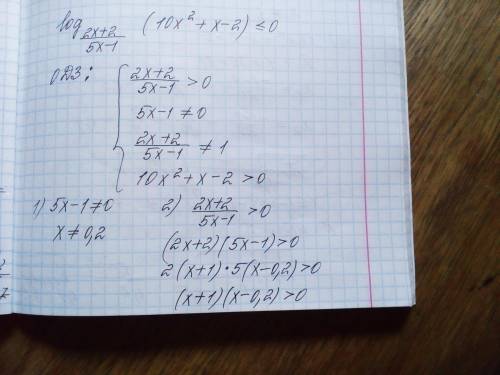 log_{\frac{2x+2}{5x-1}} (10x²+x-2) ≤ 0
ОДЗ: { \frac{2x+2}{5x-1} > 0
5x-1 ≠ 0
\frac{2x+2}{5x-1} ≠ 1
10x²+x-2 > 0
1) 5x-1 ≠ 0
x ≠ 0,2
2) \frac{2x+2}{5x-1} > 0
(2x+2)(5x-1) > 0
2(x+1)·5(x-0,2) > 0
(x+1)(x-0,2) > 0